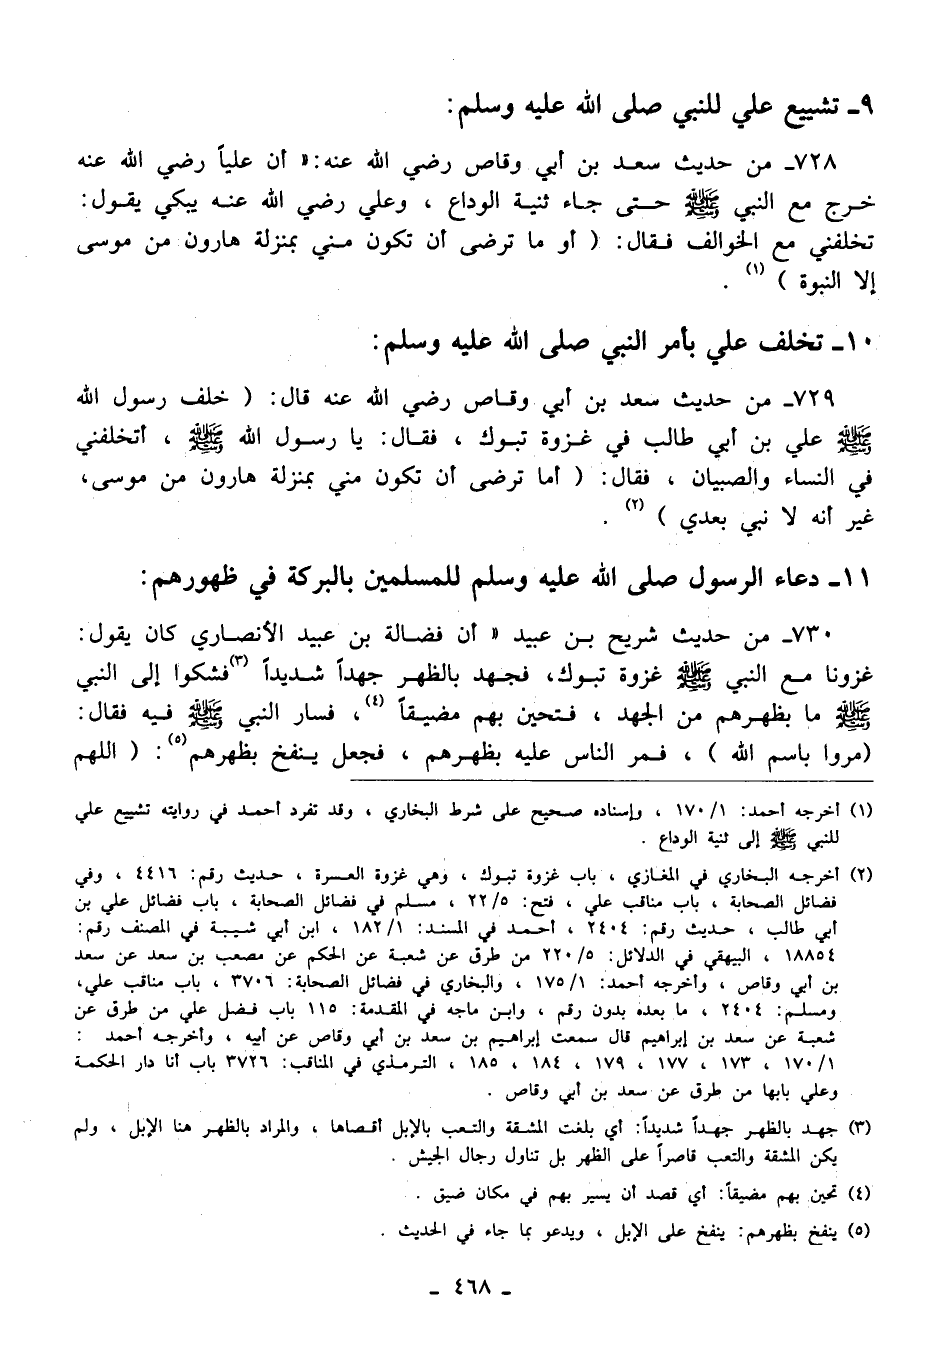 ٩ـ تشييع علي للنبي صلى الله عليه وسلم:
٧٢٨ـ من حديث سعد بن أبي وقاص رضي الله عنه:« أن علياً رضي الله عنه
خرج مع النبي ﷺ حتى جاء ثنية الوداع ، وعلي رضي الله عنه يبكي يقول:
تخلفني مع الخوالف فقال: ( أو ما ترضى أن تكون مني بمنزلة هارون من موسى
إلا النبوة ) (١) .
١٠ـ تخلف علي بأمر النبي صلى الله عليه وسلم:
٧٢٩ـ من حديث سعد بن أبي وقاص رضي الله عنه قال: ( خلف رسول الله
ﷺ علي بن أبي طالب في غزوة تبوك ، فقال: يا رسول الله ﷺ ، أتخلفني
في النساء والصبيان ، فقال: ( أما ترضى أن تكون مني بمنزلة هارون من موسى،
غير أنه لا نبي بعدي ) (٢) .
١١ـ دعاء الرسول صلى الله عليه وسلم للمسلمين بالبركة في ظهورهم:
٧٣٠ـ من حديث شريح بن عبيد « أن فضالة بن عبيد الأنصاري كان يقول:
غزونا مع النبي ﷺ غزوة تبوك، فجهد بالظهر جهداً شديداً (٣)فشكوا إلى النبي
ﷺ ما بظهرهم من الجهد ، فتحين بهم مضيقاً (٤)، فسار النبي ﷺ فيه فقال:
(مروا باسم الله ) ، فمر الناس عليه بظهرهم ، فجعل ينفخ بظهرهم(٥): ( اللهم
(١) أخرجه أحمد: ١٧٠/١ ، وإسناده صحيح على شرط البخاري ، وقد تفرد أحمد في روايته تشييع علي
للنبي ﷺ إلى ثنية الوداع .
(٢) أخرجه البخاري في المغازي ، باب غزوة تبوك ، وهي غزوة العسرة ، حديث رقم: ٤٤١٦ ، وفي
فضائل الصحابة ، باب مناقب علي ، فتح: ٢٢/٥ ، مسلم في فضائل الصحابة ، باب فضائل علي بن
أبي طالب ، حديث رقم: ٢٤٠٤ ، أحمد في المسند: ١٨٢/١ ، ابن أبي شيبة في المصنف رقم:
١٨٨٥٤ ، البيهقي في الدلائل: ٢٢٠/٥ من طرق عن شعبة عن الحكم عن مصعب بن سعد عن سعد
بن أبي وقاص ، وأخرجه أحمد: ١٧٥/١ ، والبخاري في فضائل الصحابة: ٣٧٠٦ ، باب مناقب علي،
ومسلم: ٢٤٠٤ ، ما بعده بدون رقم ، وابن ماجه في المقدمة: ١١٥ باب فضل علي من طرق عن
شعبة عن سعد بن إبراهيم قال سمعت إبراهيم بن سعد بن أبي وقاص عن أبيه ، وأخرجه أحمد :
١٧٠/١ ، ١٧٣ ، ١٧٧ ، ١٧٩ ، ١٨٤ ، ١٨٥ ، الترمذي في المناقب: ٣٧٢٦ باب أنا دار الحكمة
وعلي بابها من طرق عن سعد بن أبي وقاص .
(٣) جهد بالظهر جهداً شديداً: أي بلغت المشقة والتعب بالإبل أقصاها ، والمراد بالظهر هنا الإبل ، ولم
يكن المشقة والتعب قاصراً على الظهر بل تناول رجال الجيش .
(٤) تحين بهم مضيقاً: أي قصد أن يسير بهم في مكان ضيق .
(٥) ينفخ بظهرهم: ينفخ على الإبل ، ويدعو بما جاء في الحديث .
ـ ٤٦٨ ـ